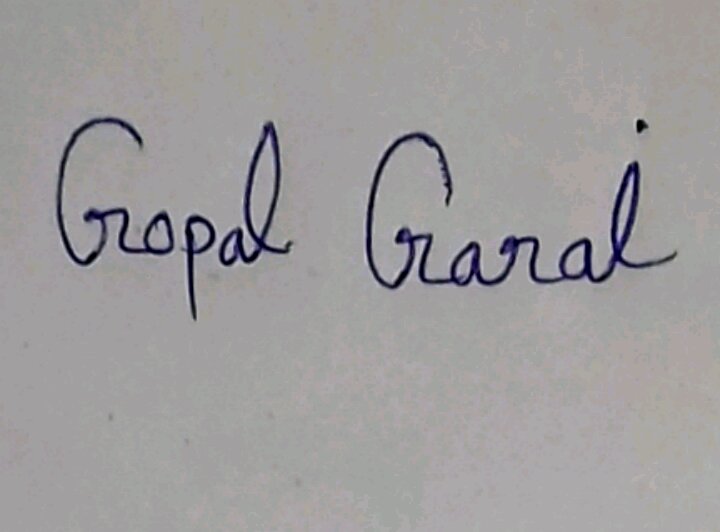 Gopal Garai